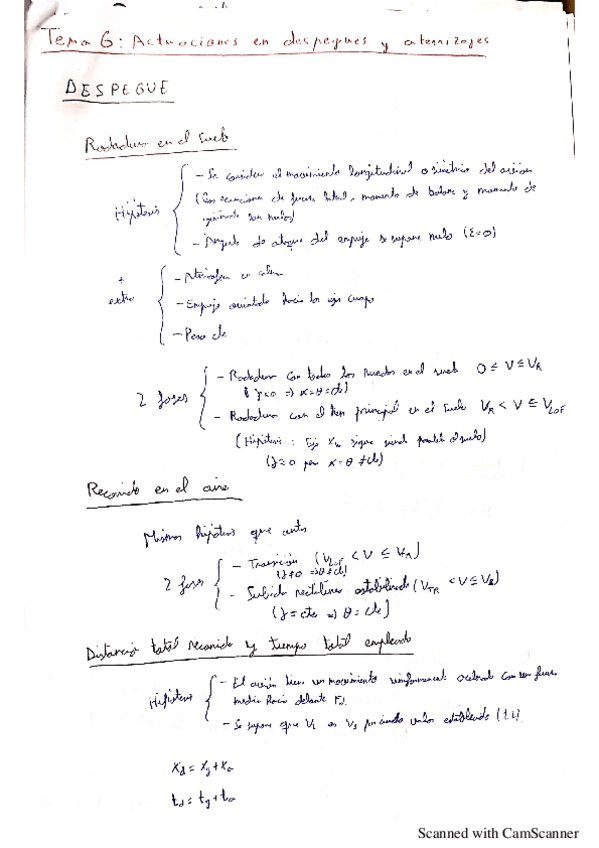 Tema 6: Actuaciones en despegues y aterrizajes
DESPEGUE
Rodadura en el suelo
Hipótesis
- Se considera el movimiento longitudinal o simétrico del avión
(las ecuaciones de fuerza lateral, momento de balance y momento de
guiñada son nulos)
- Ángulo de ataque del empuje se supone nulo (ε=0)
+
extra
- Atmósfera en calma
- Empuje orientado hacia los ejes cuerpo
- Peso cte
2 fases
- Rodadura con todas las ruedas en el suelo 0 ≤ V ≤ VR
- Rodadura con el tren principal en el suelo VR < V ≤ VLOF
(Hipótesis: Eje xw sigue siendo paralelo al suelo)
Recorrido en el aire
Mismas hipótesis que antes
2 fases
- Transición (VLOF < V ≤
- Subida rectilínea estabilizada (VTR < V ≤
(γ=cte => θ=cte)
Distancia total recorrida y tiempo total empleado
Hipótesis
- El avión tiene un movimiento uniformemente acelerado con una fuerza
media hacia delante
- Se supone que
xd = xg + xa
td = tg + ta
Scanned with CamScanner